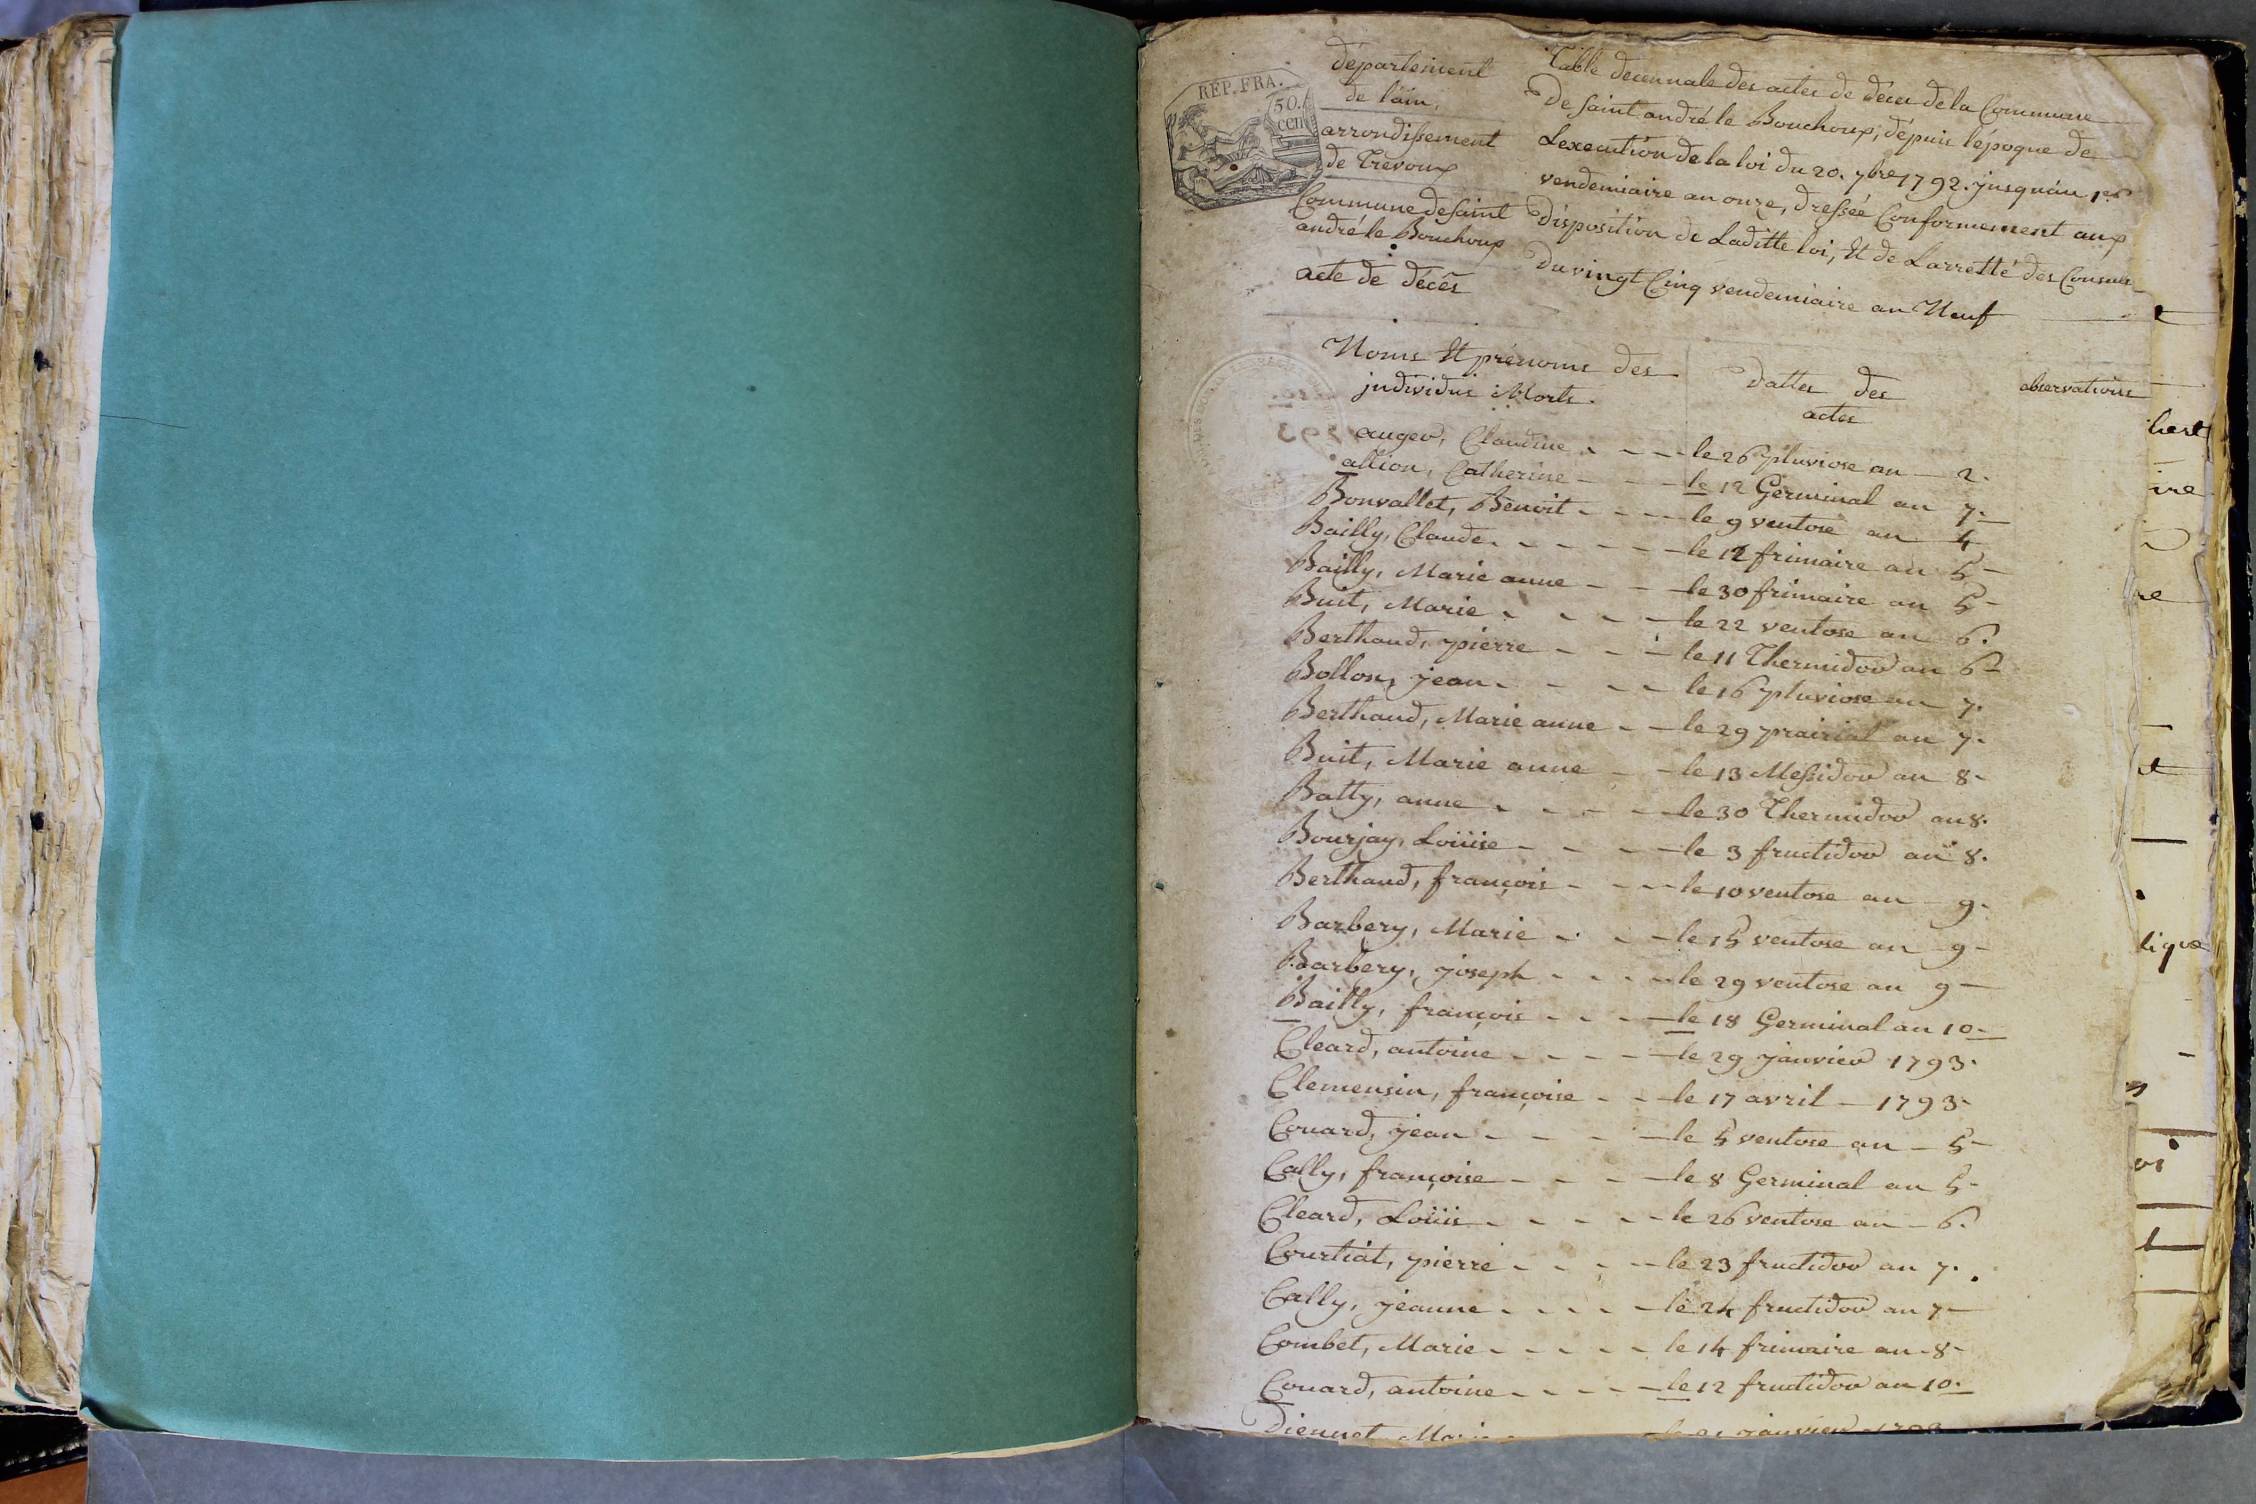 REP. FRA.
50.
CEN
département
de l'ain.
arrondissement
de Trevoux
Commune de saint
andré le Bouchoux
acte de décès
Table decennale des actes de décès de la Commune
De saint andré le Bouchoux, dépuis l'époque de
L'execution de la loi du 20. 7bre 1792. jusqu'au 1er
vendemiaire an onze, dressée Conformement aux
Disposition de Laditte loi, Et de L'arretté des Consuls
Du vingt Cinq vendemiaire an Neuf
Noms Et prénoms des
individus Morts.
Dattes des
actes
observations
auger, Claudine - - - le 26 pluviose an - 2.
allion, Catherine - - - le 12 Germinal an 7.
Bonvallet, Benoit - - - le 9 ventose an 4
Bailly, Claude - - - - - le 12 frimaire an 5 -
Bailly, Marie anne - - - le 30 frimaire an 5 -
Buit, Marie - - - - le 22 ventose an 6.
Berthaud, pierre - - - le 11 Thermidor an 6 -
Bollon, jean - - - - le 16 pluviose an 7.
Berthaud, Marie anne - - le 29 prairial an 7.
Buit, Marie anne - - le 13 Messidor an 8 -
Batty, anne - - - - le 30 Thermidor an 8.
Bourjay, Loüise - - - - le 3 fructidor an 8.
Berthaud, françois - - - le 10 ventose an - 9.
Barbery, Marie - - - le 15 ventose an - 9 -
Barbery, joseph - - - - le 29 ventose an 9 -
Bailly, françois - - - - le 18 Germinal an 10 -
Cleard, antoine - - - - - le 29 janvier 1793.
Clemensin, françoise - - - le 17 avril - 1793 -
Couard, jean - - - - le 5 ventose an - 5 -
Cally, françoise - - - - le 8 Germinal an 5 -
Cleard, Loüis - - - - - le 26 ventose an - 6.
Courtiat, pierre - - - - - le 23 fructidor an 7.
Cally, jeanne - - - - - le 24 fructidor an 7 -
Combet, Marie - - - - - le 14 frimaire an - 8 -
Couard, antoine - - - - - le 12 fructidor an 10.
Diennet